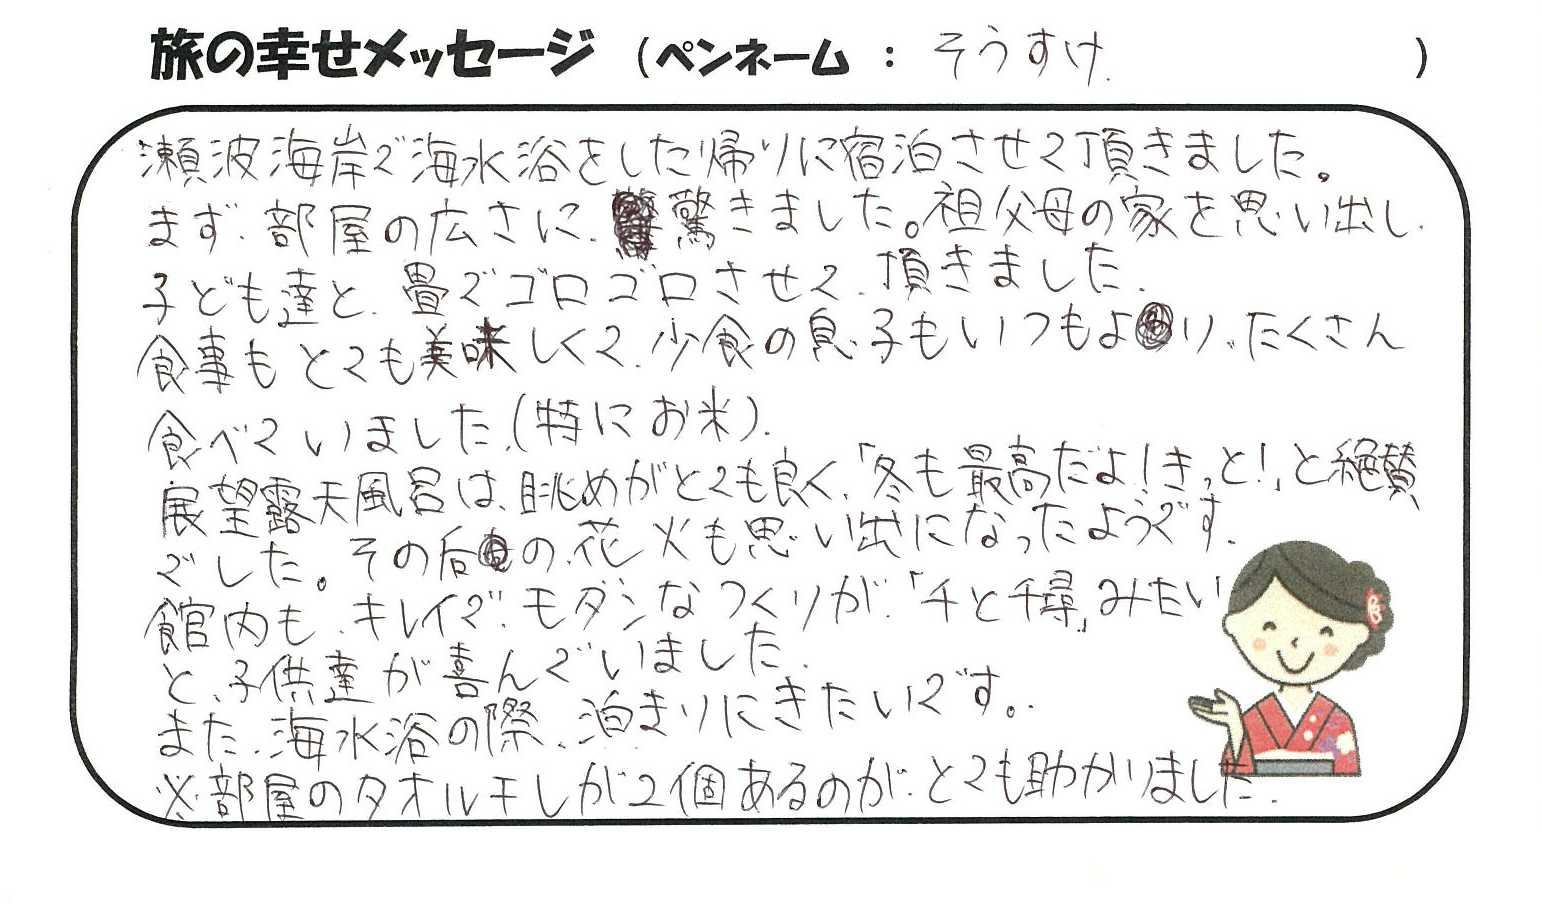 旅の幸せメッセージ (ペンネーム : そうすけ )
瀬波海岸で海水浴をした帰りに宿泊させて頂きました。
まず、部屋の広さに、驚きました。祖父母の家を思い出し、
子ども達と、畳でゴロゴロさせて、頂きました。
食事もとても美味しくて、少食の息子もいつもより、たくさん
食べていました。(特にお米)。
展望露天風呂は、眺めがとても良く、「冬も最高だよ!きっと!」と絶賛
でした。その后の、花火も思い出になったようです。
館内も、キレイで、モダンなつくりが、「千と千尋」みたい
と、子供達が喜んでいました。
また、海水浴の際、泊まりにきたいです。
※部屋のタオル干しが2個あるのが、とても助かりました。